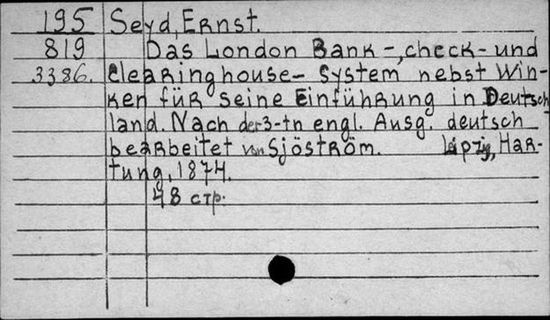 195 Seyd, Ernst.
819 Das London Bank-, check- und
3386. Clearinghouse- System nebst Win-
ken für seine Einführung in Deutsch
land. Nach der 3-tn engl. Ausg. deutsch
bearbeitet von Sjöström. Leipzig, Har-
tung, 1874.
48 стр.